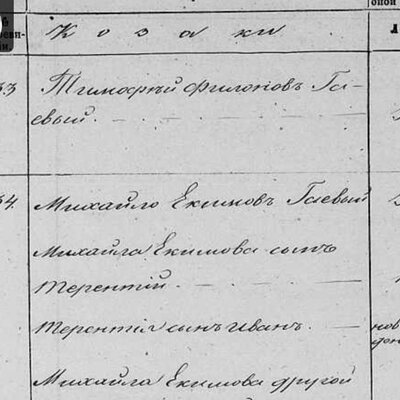 Козаки
53
Тимофѣй Филоновъ Га-
евый.
54.
Михайло Екимовъ Гаевый
Михайла Екимова сынъ
Терентій.
Терентія сынъ Иванъ.
нов
Михайла Екимова другой